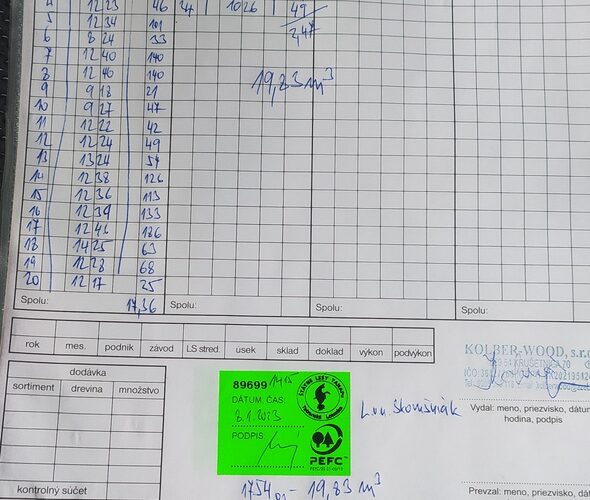 4 12 23 46 24 1026 49
5 12 34 101 2,47
6 8 24 33
7 12 40 140
8 12 40 140 19,83 m³
9 9 18 21
10 9 27 47
11 12 22 42
12 12 24 49
13 13 24 54
14 12 38 126
15 12 36 113
16 12 39 133
17 12 46 186
18 14 25 63
19 12 28 68
20 12 17 25
Spolu: 17,36 Spolu: Spolu: Spolu:
rok mes. podnik závod LS stred. úsek sklad doklad výkon podvýkon
KOLBER-WOOD, s.r.o
dodávka
sortiment drevina množstvo
kontrolný súčet
89699
DÁTUM, ČAS:
8.1.2023
PODPIS:
ŠTÁTNE LESY TANAPU
PEFC
Vydal: meno, priezvisko, dátum
hodina, podpis
1754 - 19,83 m³
Prevzal: meno, priezvisko,